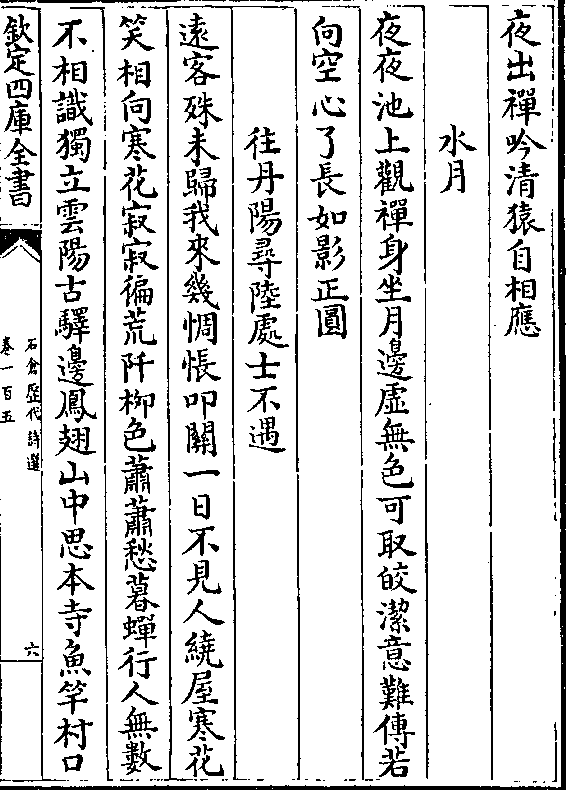 夜出禪吟清猿自相應
水月
夜夜池上觀禪身坐月邊虛無色可取皎潔意難傳若
向空心了長如影正圓
往丹陽尋陸處士不遇
遠客殊未歸我來幾惆悵叩關一日不見人繞屋寒花
笑相向寒花寂寂徧荒阡栁色蕭蕭愁暮蟬行人無數
不相識獨立雲陽古驛邊鳳翅山中思本寺魚竿村口
欽定四庫全書
石倉歷代詩選
卷一百五
六